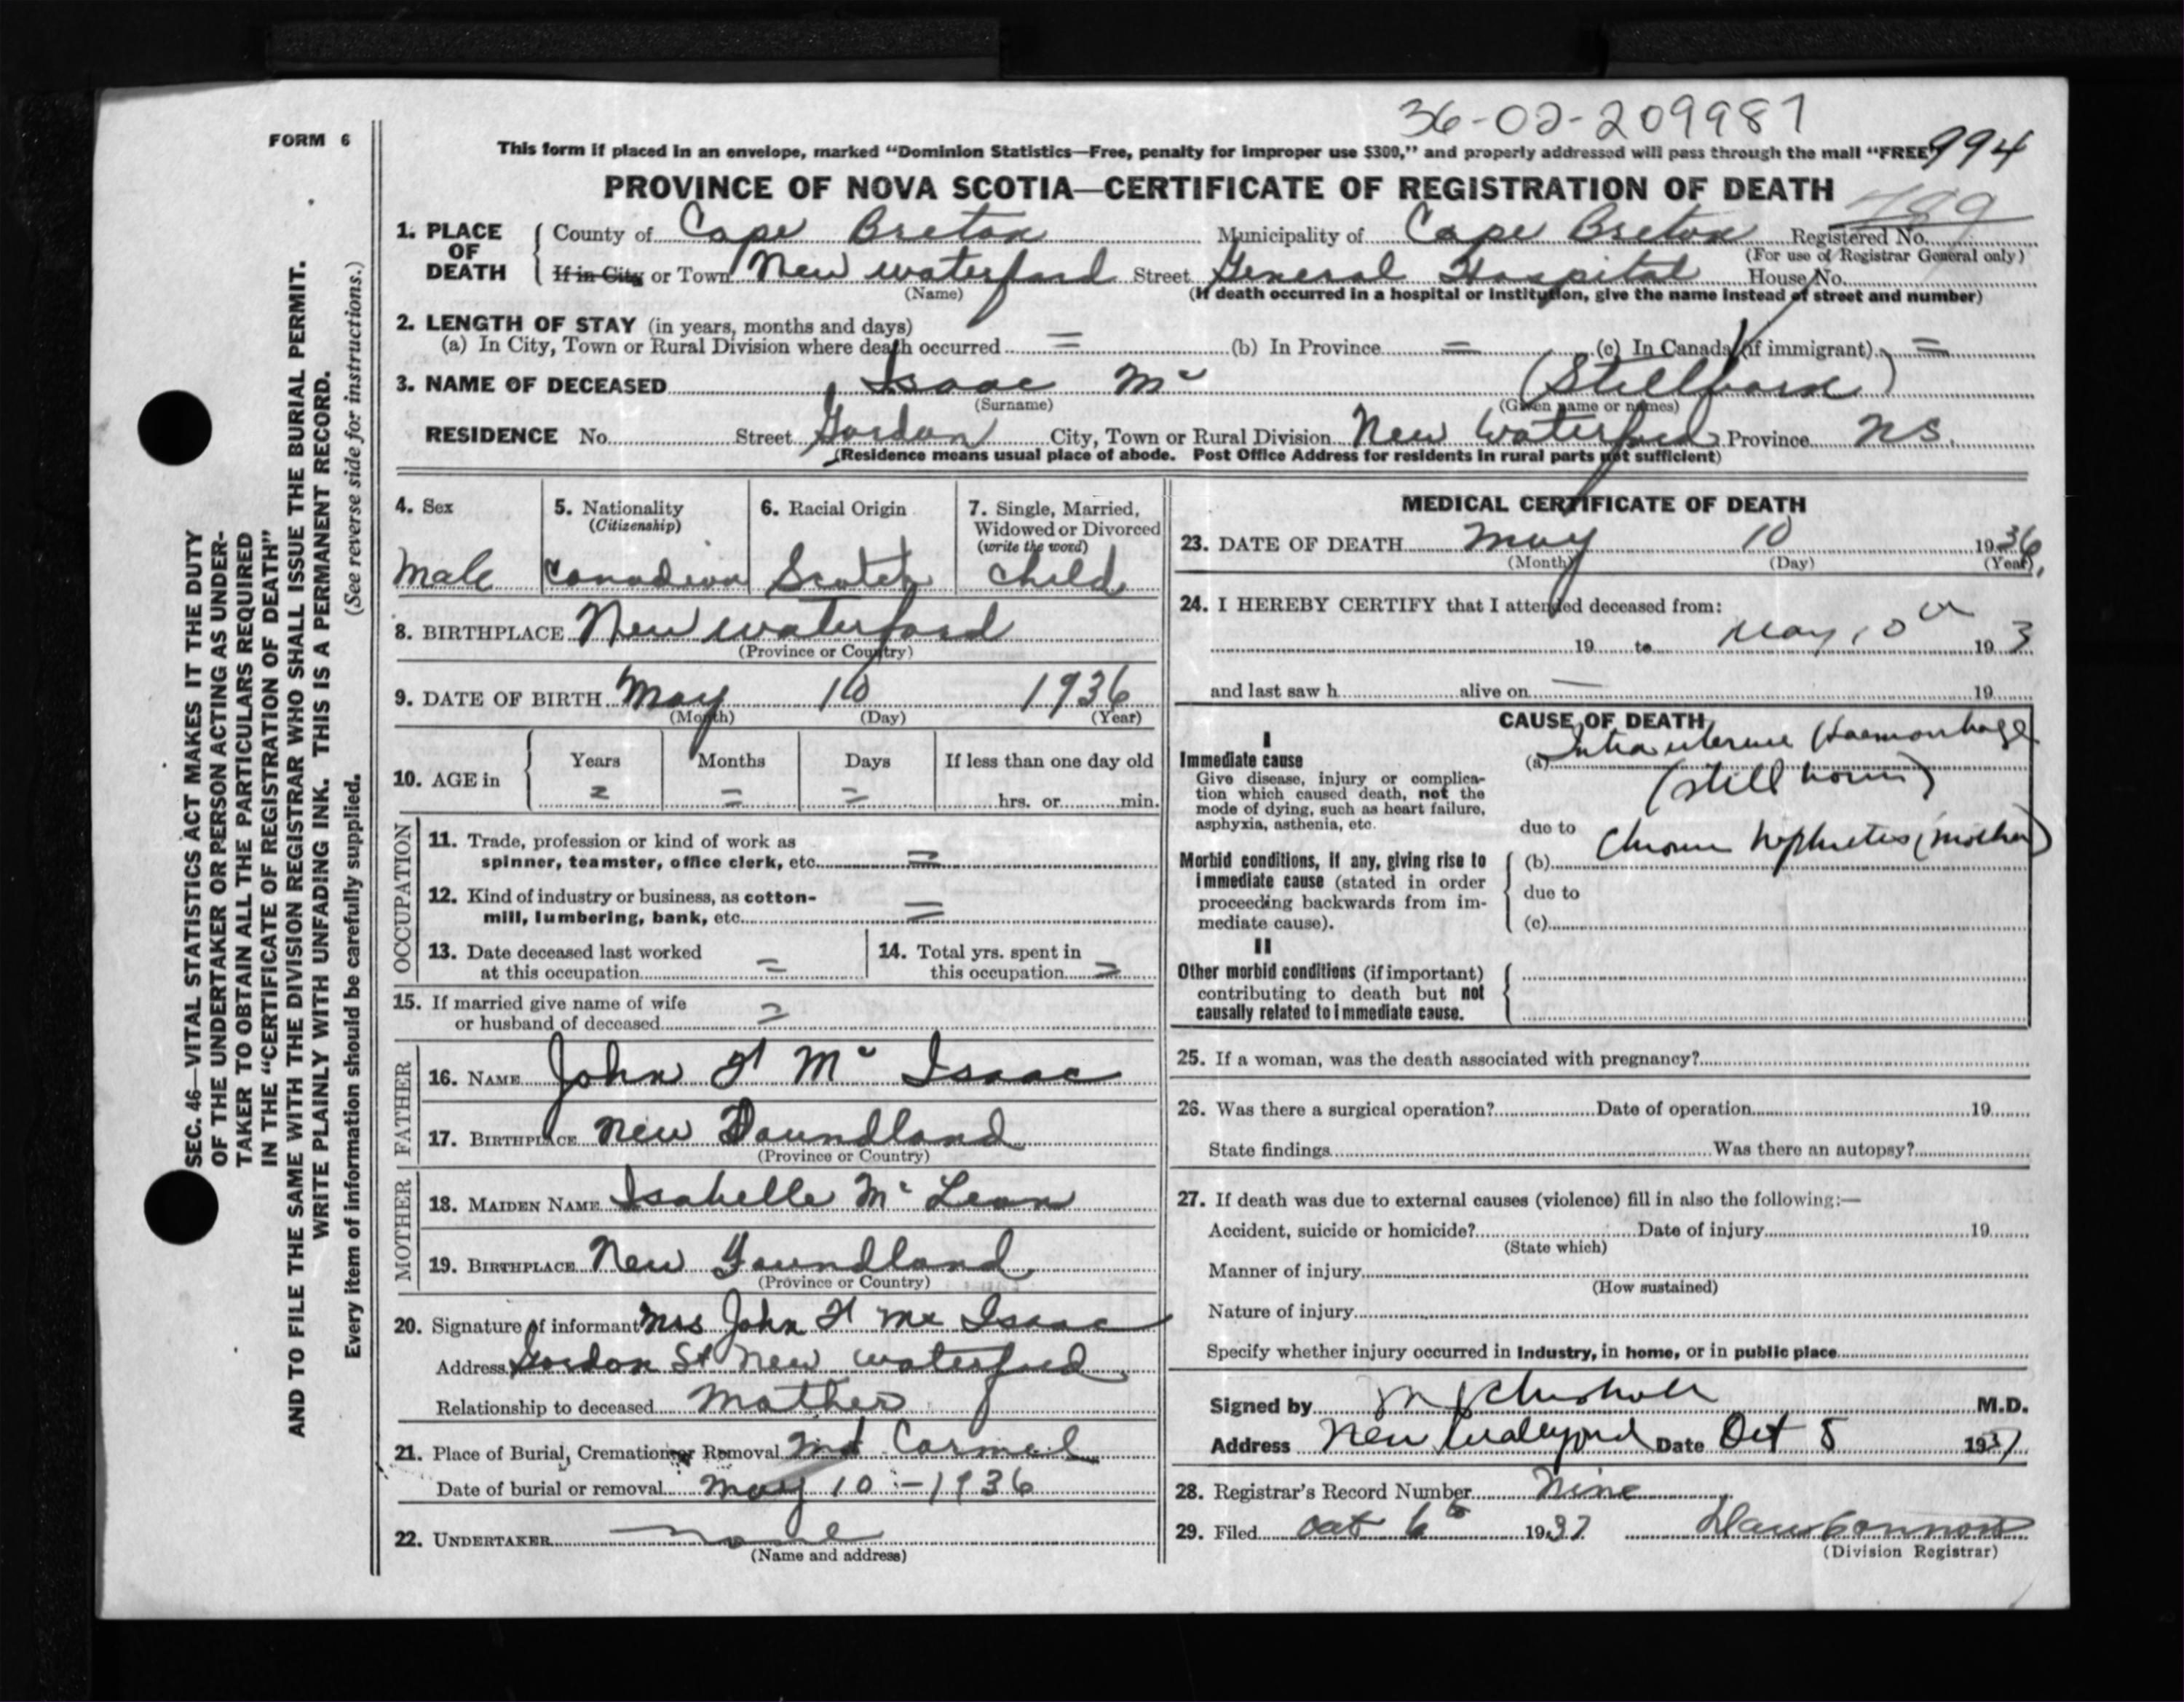 36-02-209987
FORM 6
This form if placed in an envelope, marked "Dominion Statistics—Free, penalty for improper use $300," and properly addressed will pass through the mail "FREE"
994
PROVINCE OF NOVA SCOTIA—CERTIFICATE OF REGISTRATION OF DEATH
789
1. PLACE OF DEATH County of Cape Breton Municipality of Cape Breton Registered No.
(For use of Registrar General only)
If in City or Town New Waterford Street General Hospital House No.
(Name) (If death occurred in a hospital or institution, give the name instead of street and number)
2. LENGTH OF STAY (in years, months and days)
(a) In City, Town or Rural Division where death occurred = (b) In Province = (c) In Canada (if immigrant) =
3. NAME OF DECEASED Isaac Mc (Stillborn)
(Surname) (Given name or names)
RESIDENCE No. Street Gordon City, Town or Rural Division New Waterford Province NS.
(Residence means usual place of abode. Post Office Address for residents in rural parts not sufficient)
4. Sex
Male
5. Nationality
(Citizenship)
Canadian
6. Racial Origin
Scotch
7. Single, Married,
Widowed or Divorced
(write the word)
Child
8. BIRTHPLACE New Waterford
(Province or Country)
9. DATE OF BIRTH May 10 1936
(Month) (Day) (Year)
10. AGE in Years Months Days If less than one day old
= = = hrs. or min.
OCCUPATION
11. Trade, profession or kind of work as
spinner, teamster, office clerk, etc. =
12. Kind of industry or business, as cotton-
mill, lumbering, bank, etc. =
13. Date deceased last worked
at this occupation =
14. Total yrs. spent in
this occupation =
15. If married give name of wife
or husband of deceased =
FATHER
16. NAME John F Mc Isaac
17. BIRTHPLACE New Foundland
(Province or Country)
MOTHER
18. MAIDEN NAME Isabelle Mc Lean
19. BIRTHPLACE New Foundland
(Province or Country)
20. Signature of informant Mrs John F Mc Isaac
Address Gordon St New Waterford
Relationship to deceased Mother
21. Place of Burial, Cremation or Removal Mt Carmel
Date of burial or removal May 10 - 1936
22. UNDERTAKER none
(Name and address)
MEDICAL CERTIFICATE OF DEATH
23. DATE OF DEATH May 10 1936
(Month) (Day) (Year)
24. I HEREBY CERTIFY that I attended deceased from:
19 to May 10th 193
and last saw h alive on — 19
CAUSE OF DEATH
I
Immediate cause
Give disease, injury or complica-
tion which caused death, not the
mode of dying, such as heart failure,
asphyxia, asthenia, etc.
(a) Intrauterine Haemorrhage
(still born)
due to
Morbid conditions, if any, giving rise to
immediate cause (stated in order
proceeding backwards from im-
mediate cause).
(b) Chronic Nephritis (mother)
due to
(c)
II
Other morbid conditions (if important)
contributing to death but not
causally related to immediate cause.
25. If a woman, was the death associated with pregnancy?
26. Was there a surgical operation? Date of operation 19
State findings Was there an autopsy?
27. If death was due to external causes (violence) fill in also the following:—
Accident, suicide or homicide? Date of injury 19
(State which)
Manner of injury
(How sustained)
Nature of injury
Specify whether injury occurred in Industry, in home, or in public place
Signed by M Chisholm M.D.
Address New Waterford Date Oct 5 1937
28. Registrar's Record Number Nine
29. Filed Oct 6th 1937
(Division Registrar)
SEC. 46—VITAL STATISTICS ACT MAKES IT THE DUTY
OF THE UNDERTAKER OR PERSON ACTING AS UNDER-
TAKER TO OBTAIN ALL THE PARTICULARS REQUIRED
IN THE "CERTIFICATE OF REGISTRATION OF DEATH"
AND TO FILE THE SAME WITH THE DIVISION REGISTRAR WHO SHALL ISSUE THE BURIAL PERMIT.
WRITE PLAINLY WITH UNFADING INK. THIS IS A PERMANENT RECORD.
Every item of information should be carefully supplied. (See reverse side for instructions.)